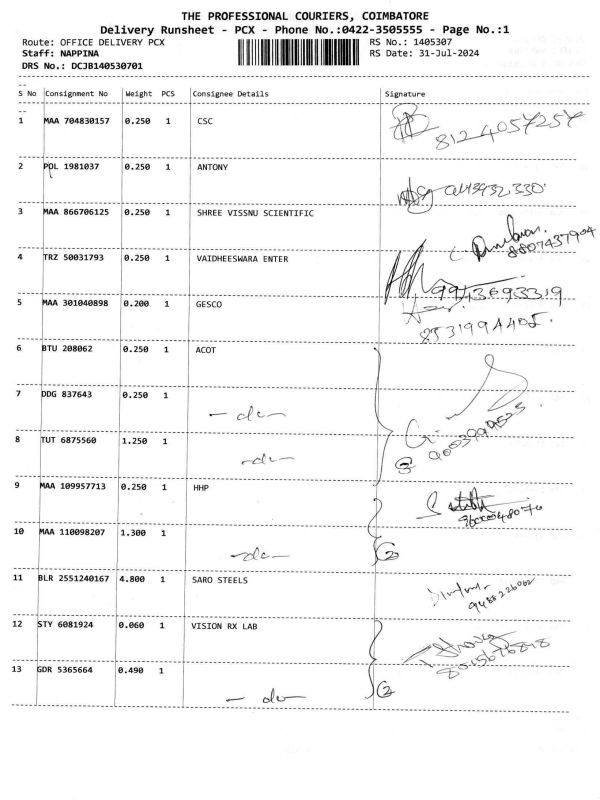 THE PROFESSIONAL COURIERS, COIMBATORE
Delivery Runsheet - PCX - Phone No.:0422-3505555 - Page No.:1
Route: OFFICE DELIVERY PCX RS No.: 1405307
Staff: NAPPINA RS Date: 31-Jul-2024
DRS No.: DCJB140530701
S No Consignment No Weight PCS Consignee Details Signature
1 MAA 704830157 0.250 1 CSC
8124057257
2 POL 1981037 0.250 1 ANTONY
3 MAA 866706125 0.250 1 SHREE VISSNU SCIENTIFIC
8807437904
4 TRZ 50031793 0.250 1 VAIDHEESWARA ENTER
9943693319
5 MAA 301040898 0.200 1 GESCO
6 BTU 208062 0.250 1 ACOT
7 DDG 837643 0.250 1
- do -
8 TUT 6875560 1.250 1
- do -
3
9 MAA 109957713 0.250 1 HHP
10 MAA 110098207 1.300 1
- do - 2
11 BLR 2551240167 4.800 1 SARO STEELS
9488226062
12 STY 6081924 0.060 1 VISION RX LAB
13 GDR 5365664 0.490 1
- do - 2